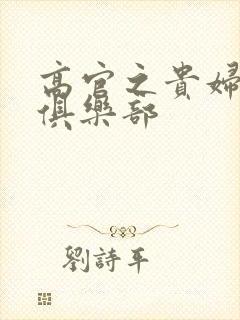 高官之貴婦
俱樂部
劉詩平